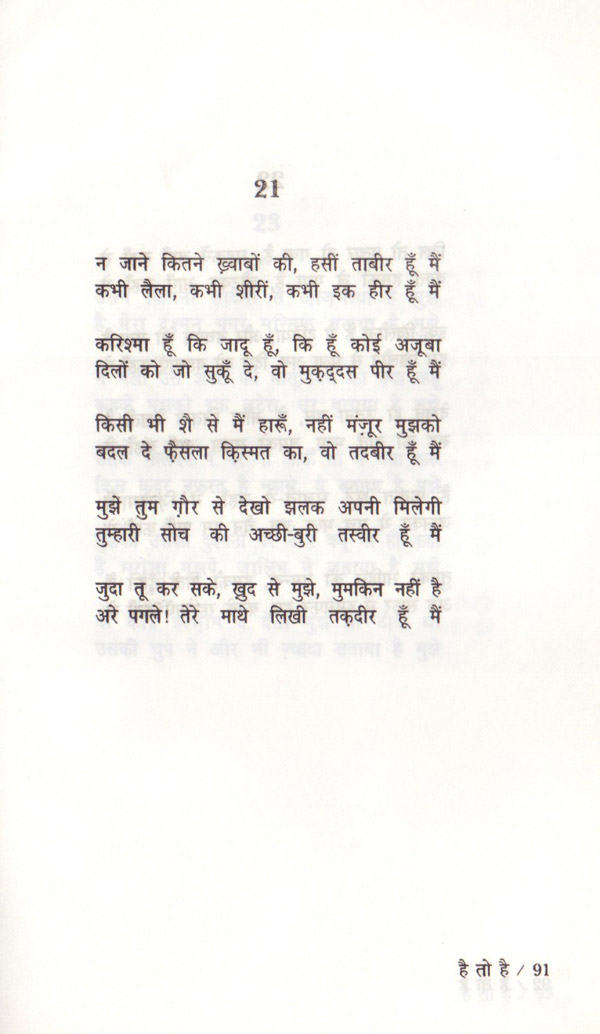 21
न जाने कितने ख़्वाबों की, हसीं ताबीर हूँ मैं
कभी लैला, कभी शीरीं, कभी इक हीर हूँ मैं
करिश्मा हूँ कि जादू हूँ, कि हूँ कोई अजूबा
दिलों को जो सुकूँ दे, वो मुक़द्दस पीर हूँ मैं
किसी भी शै से मैं हारूँ, नहीं मंज़ूर मुझको
बदल दे फ़ैसला क़िस्मत का, वो तदबीर हूँ मैं
मुझे तुम ग़ौर से देखो झलक अपनी मिलेगी
तुम्हारी सोच की अच्छी-बुरी तस्वीर हूँ मैं
जुदा तू कर सके, ख़ुद से मुझे, मुमकिन नहीं है
अरे पगले! तेरे माथे लिखी तक़दीर हूँ मैं
है तो है / 91